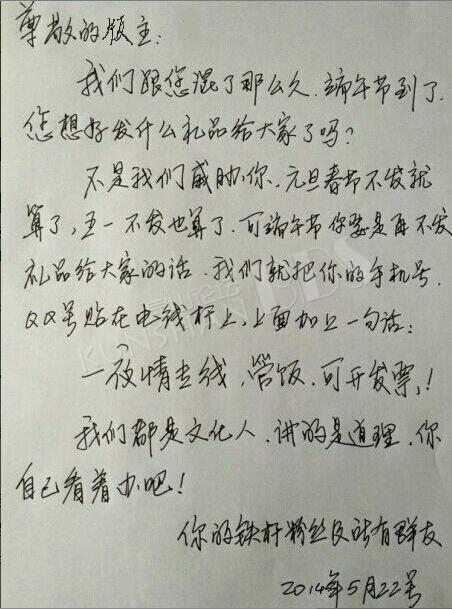 尊敬的版主:
我们跟您混了那么久、端午节到了.
您想好发什么礼品给大家了吗?
不是我们威胁你、元旦春节不发就
算了,五一不发也算了.可端午节你要是再不发
礼品给大家的话、我们就把你的手机号、
QQ号贴在电线杆上,上面加上一句话:
一夜情专线,管饭、可开发票,!
我们都是文化人、讲的是道理、你
自己看着办吧!
你的铁杆粉丝及所有群友
2014年5月22号
KUNSHAN BBS